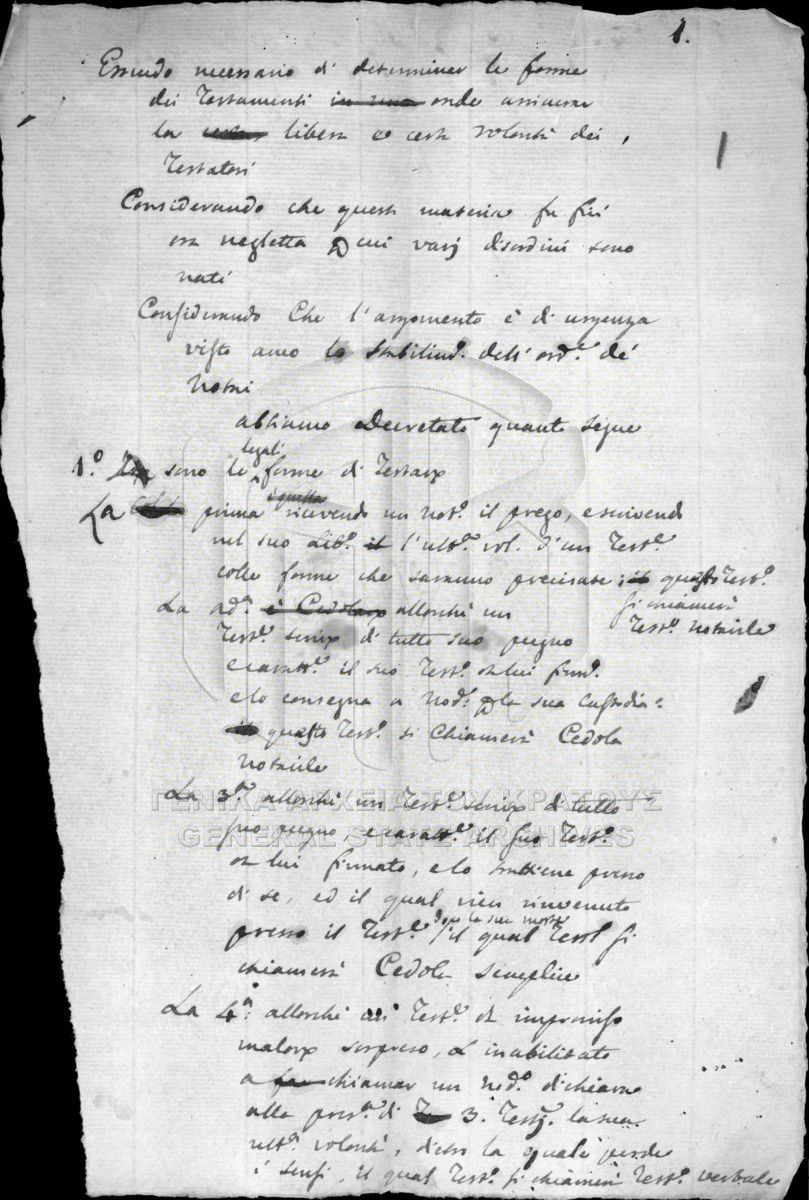 1.
Essendo necessario di determinar le forme
dei Testamenti onde assicurar
la libera e certa volontà dei
Testatori
Considerando che questa materia fu fin
ora negletta cui varj disordini sono
nati
Considerando Che l'argomento è di urgenza
visto anco lo dell'ord.e de'
Notai
abbiamo Decretato quanto segue
legali
1.o sono le forme di Testare
La prima ricevendo un Not.o il prego, e scrivendo
nel suo Lib.o l'ult.a vol. d'un Test.e
colle forme che saranno precisate; questo Test.o
si chiamerà
Test.o notarile
La allorchè un
Test.e scrive di tutto suo pugno
e caratt.e il suo Test.o da lui firm.o
e lo consegna a Nod.o la sua Custodia:
questo Test.o si chiamerà Cedola
Notarile
La 3.a allorchè un Test.e scrive di tutto
suo pugno, e caratt.e il suo Test.o
da lui firmato, e lo trattiene presso
di se, ed il qual vien rinvenuto
dopo la sua morte
presso il Test.e il qual Test.o si
chiamerà Cedola Semplice
La 4.a: allorchè un Test.e da improviso
malore sorpreso, inabilitato
a chiamar un Nod.o dichiara
alla pres.a di 3. Testj. la sua
ult.a volontà, dietro la quale perde
i sensi, il qual Test.o si chiamerà Test.o verbale
ΓΕΝΙΚΑ ΑΡΧΕΙΑ ΤΟΥ ΚΡΑΤΟΥΣ
GENERAL STATE ARCHIVES